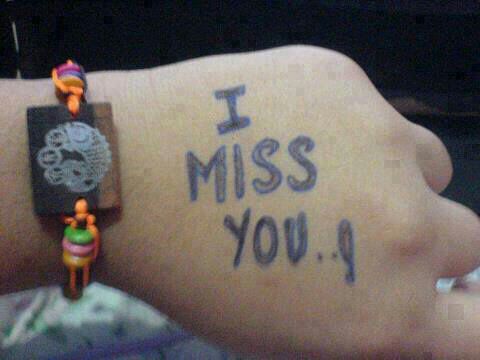 I
MISS
YOU..!